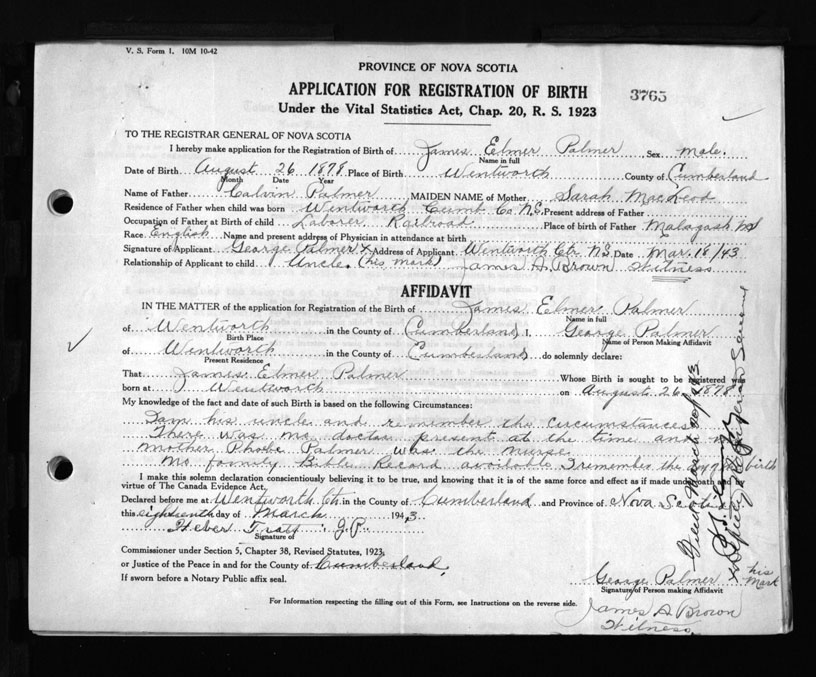 V. S. Form 1. 10M 10-42
PROVINCE OF NOVA SCOTIA
APPLICATION FOR REGISTRATION OF BIRTH
3765
Under the Vital Statistics Act, Chap. 20, R. S. 1923
TO THE REGISTRAR GENERAL OF NOVA SCOTIA
I hereby make application for the Registration of Birth of James Elmer Palmer Sex male
Name in full
Date of Birth August 26 1878 Place of Birth Wentworth County of Cumberland
Month Date Year
Name of Father Calvin Palmer MAIDEN NAME of Mother Sarah MacLeod
Residence of Father when child was born Wentworth Cumb. Co. N.S. Present address of Father
Occupation of Father at Birth of child Laborer Railroad Place of birth of Father Malagash N.S
Race English Name and present address of Physician in attendance at birth
Signature of Applicant George Palmer X Address of Applicant Wentworth Ctr. N.S. Date Mar. 18/43
Relationship of Applicant to child Uncle. (his mark) James D. Brown Witness
AFFIDAVIT
IN THE MATTER of the application for Registration of the Birth of James Elmer Palmer
Name in full
of Wentworth in the County of Cumberland I, George Palmer
Birth Place Name of Person Making Affidavit
of Wentworth in the County of Cumberland do solemnly declare:
Present Residence
That James Elmer Palmer Whose Birth is sought to be registered was
born at Wentworth on August 26 1878
My knowledge of the fact and date of such Birth is based on the following Circumstances:
I am his uncle and remember the circumstances
There was no doctor present at the time and
mother Phobe Palmer was the nurse.
No family Bible Record available I remember the birth
I make this solemn declaration conscientiously believing it to be true, and knowing that it is of the same force and effect as if made under oath and by
virtue of The Canada Evidence Act.
Declared before me at Wentworth Ctr. in the County of Cumberland and Province of Nova Scotia
this eighteenth day of March 1943
Heber Tratt J.P.
Signature of
Commissioner under Section 5, Chapter 38, Revised Statutes, 1923,
or Justice of the Peace in and for the County of Cumberland.
If sworn before a Notary Public affix seal.
George Palmer his mark
Signature of Person making Affidavit
For Information respecting the filling out of this Form, see Instructions on the reverse side.
James D. Brown
Witness.
Filed March 20/1943
Deputy Registrar General